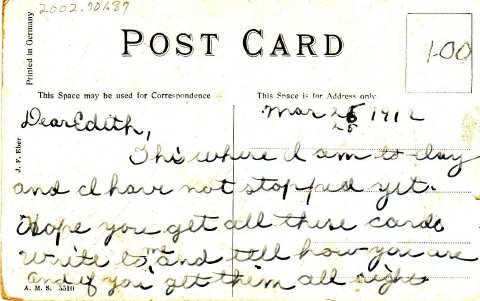 2002.70687
Printed in Germany
POST CARD
1.00
This Space may be used for Correspondence
This Space is for Address only
Dear Edith,
Mar 25 1912
25
Thi where I am to day
and I have not stopped yet.
Hope you get all these cards
write to me and tell how you are
and if you get them all right
J. F. Eber
A. M. S. 5510